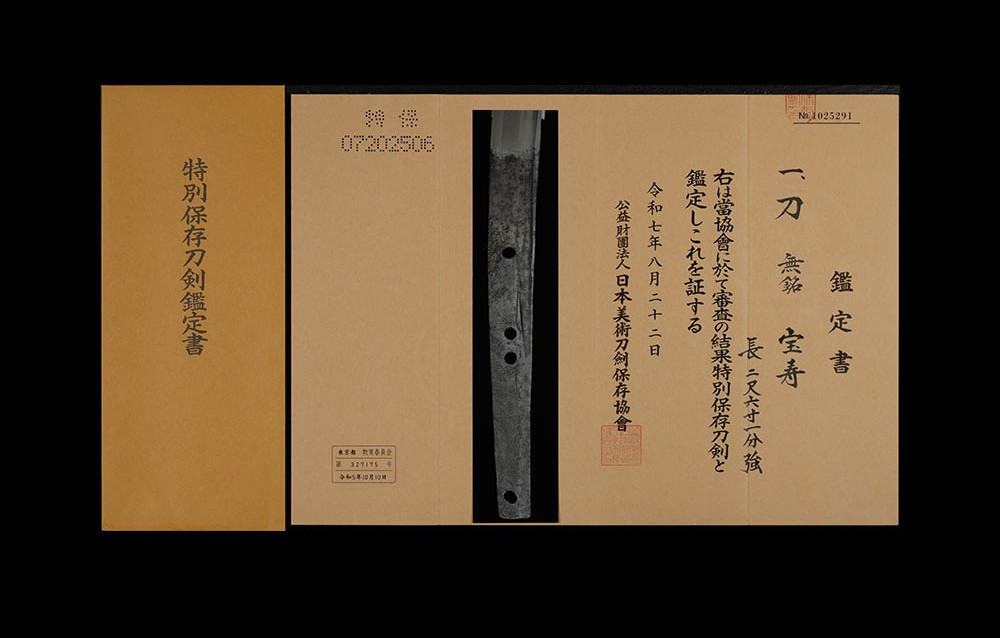 特別保存刀剣鑑定書
№ 1025291
鑑定書
一、刀 無銘 宝寿
長 二尺六寸一分強
右は當協會に於て審査の結果特別保存刀剣と
鑑定しこれを証する
令和七年八月二十二日
公益財團法人 日本美術刀劍保存協會
特保
07202506
東京都 教育委員会
第 327175 号
令和5年10月10日